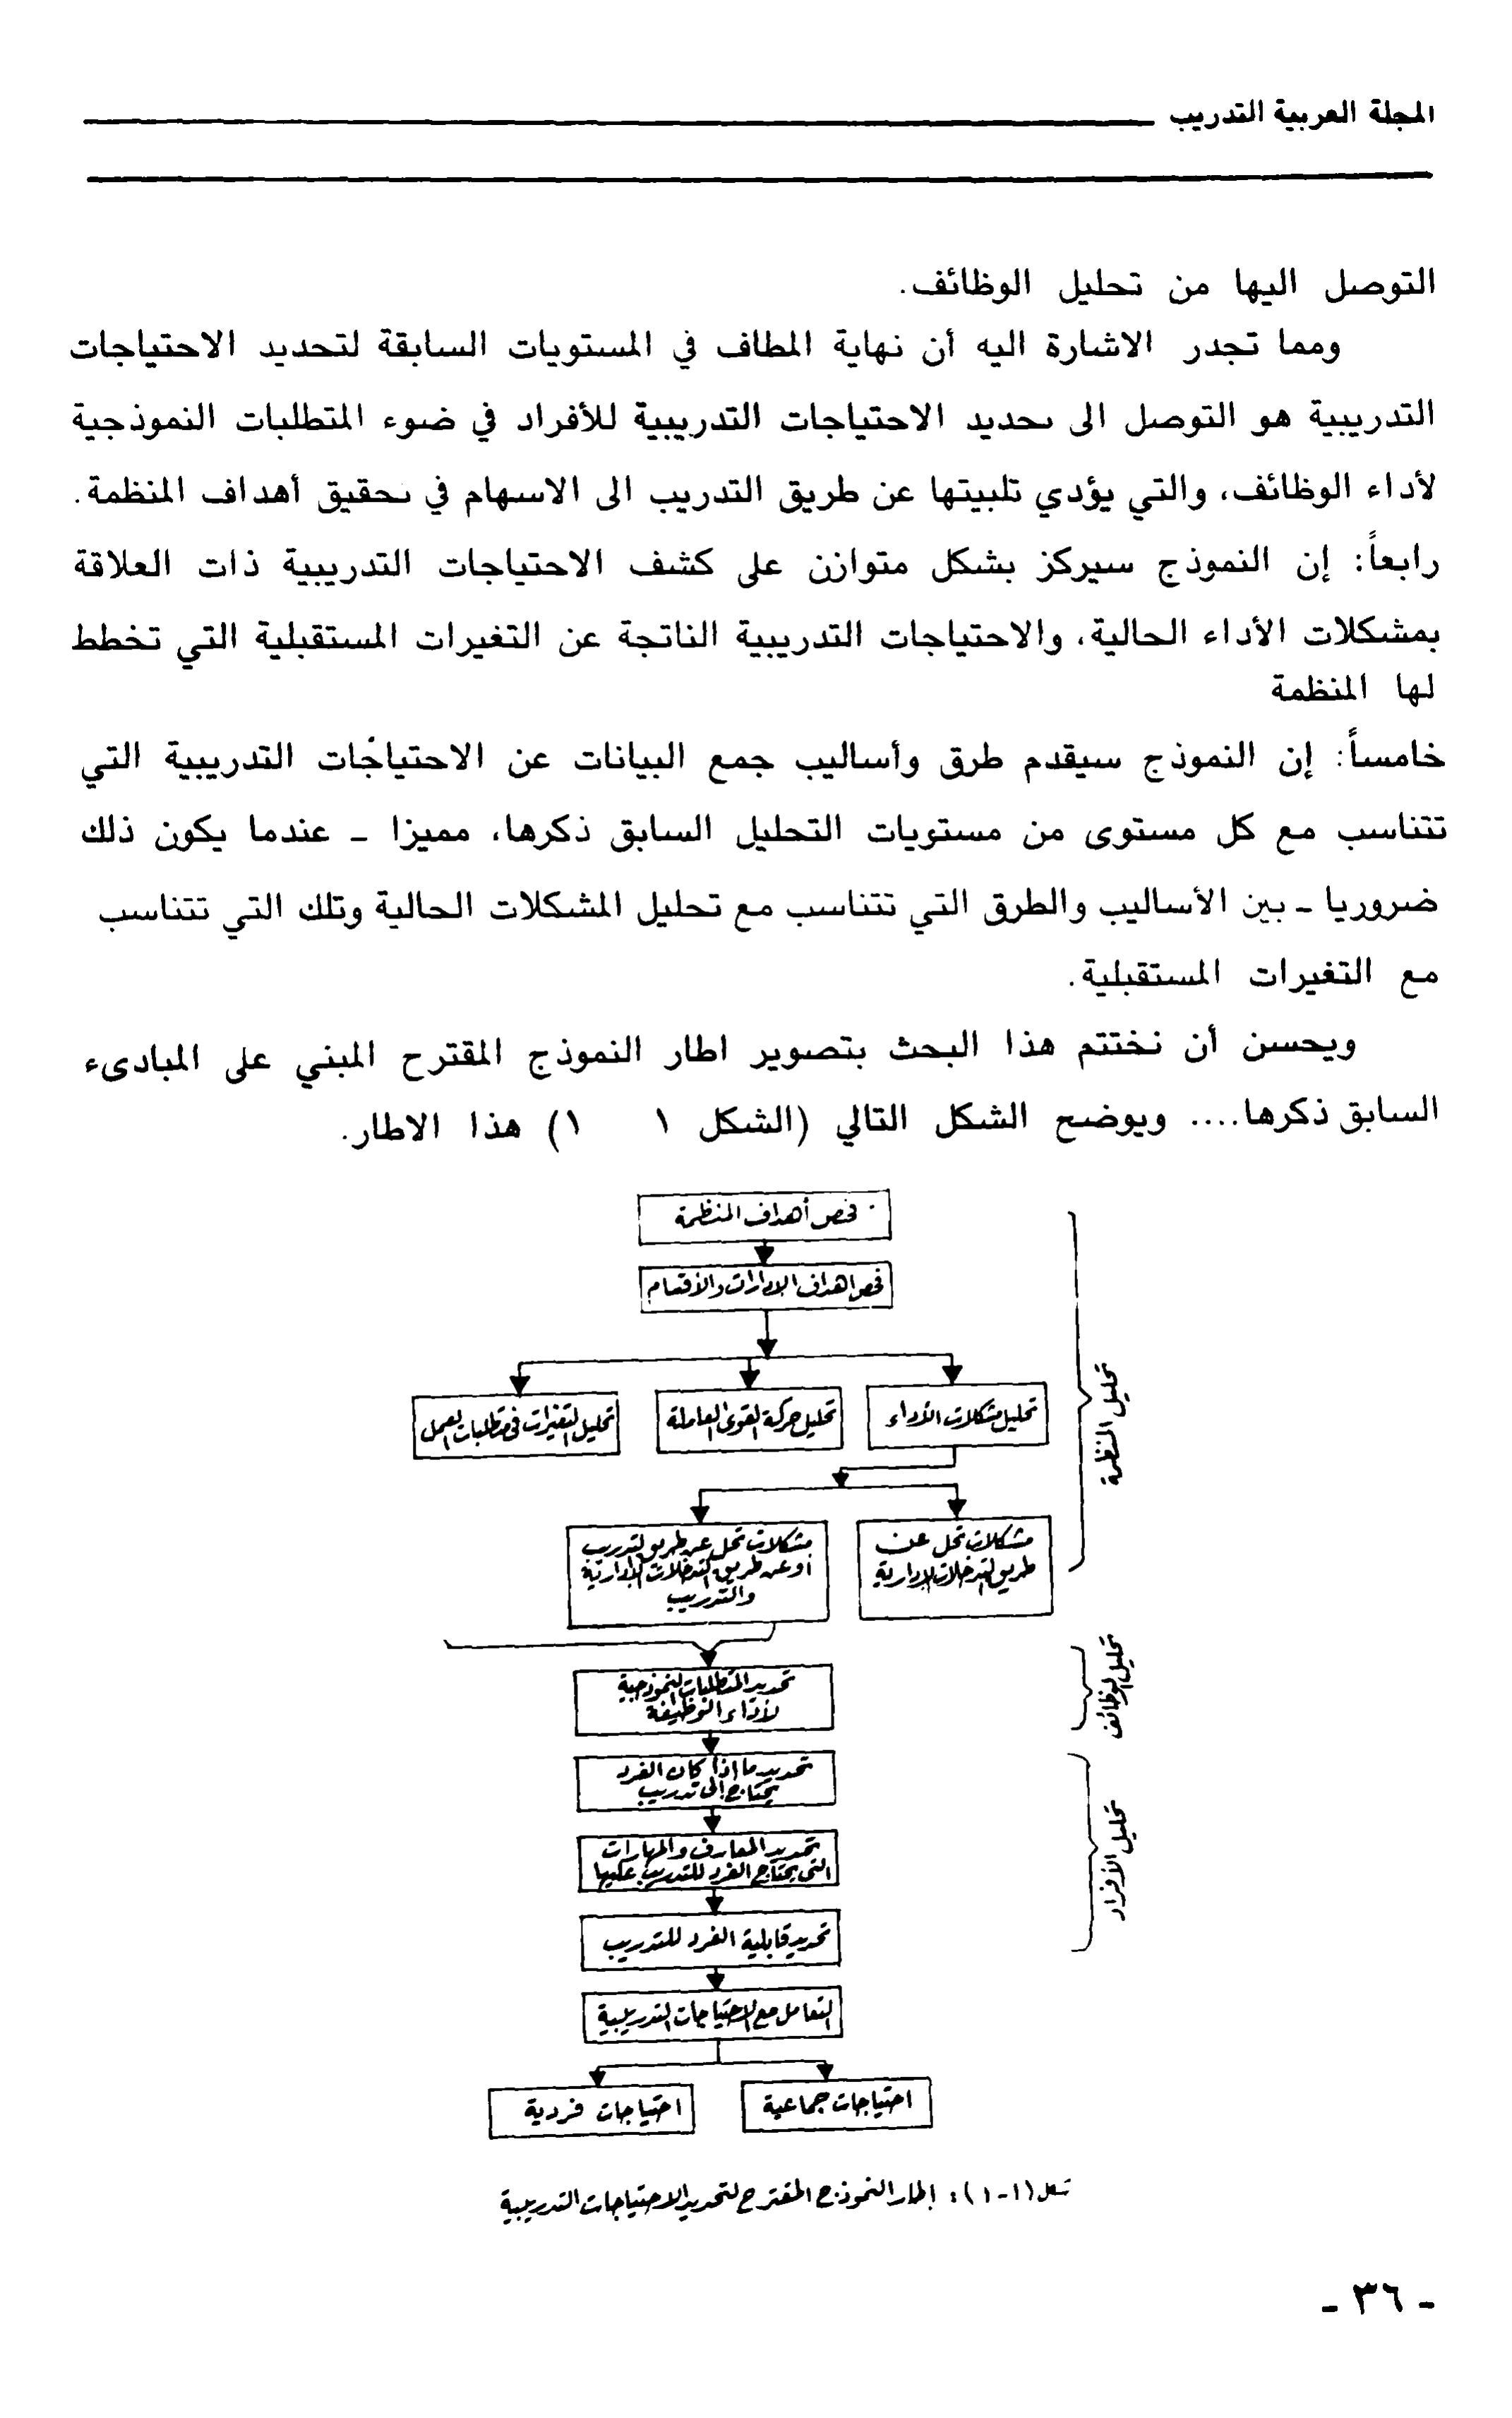 المجلة العربية التدريب
التوصل اليها من تحليل الوظائف.
ومما تجدر الاشارة اليه أن نهاية المطاف في المستويات السابقة لتحديد الاحتياجات
التدريبية هو التوصل الى تحديد الاحتياجات التدريبية للأفراد في ضوء المتطلبات النموذجية
لأداء الوظائف، والتي يؤدي تلبيتها عن طريق التدريب الى الاسهام في تحقيق أهداف المنظمة.
رابعاً: إن النموذج سيركز بشكل متوازن على كشف الاحتياجات التدريبية ذات العلاقة
بمشكلات الأداء الحالية، والاحتياجات التدريبية الناتجة عن التغيرات المستقبلية التي تخطط
لها المنظمة
خامساً: إن النموذج سيقدم طرق وأساليب جمع البيانات عن الاحتياجات التدريبية التي
تتناسب مع كل مستوى من مستويات التحليل السابق ذكرها، مميزا - عندما يكون ذلك
ضروريا - بين الأساليب والطرق التي تتناسب مع تحليل المشكلات الحالية وتلك التي تتناسب
مع التغيرات المستقبلية.
ويحسن أن نختتم هذا البحث بتصوير اطار النموذج المقترح المبني على المبادىء
السابق ذكرها.... ويوضح الشكل التالي (الشكل ١ ١) هذا الاطار.
فحص أهداف المنظمة
فحص اهداف الإدارات والأقسام
تحليل مشكلات الأداء
تحليل حركة القوى العاملة
تحليل التغيرات في متطلبات العمل
تحليل المنظمة
مشكلات تحل عن
طريق التدخلات الإدارية
مشكلات تحل عن طريق التدريب
أو عن طريق التدخلات الإدارية
والتدريب
تحديد المتطلبات النموذجية
لأداء الوظيفة
تحليل الوظائف
تحديد ما إذا كان الفرد
يحتاج إلى تدريب
تحديد المعارف والمهارات
التي يحتاج الفرد للتدريب عليها
تحليل الأفراد
تحديد قابلية الفرد للتدريب
التعامل مع الاحتياجات التدريبية
احتياجات جماعية
احتياجات فردية
شكل (١-١): إطار النموذج المقترح لتحديد الاحتياجات التدريبية
- ٣٦ -